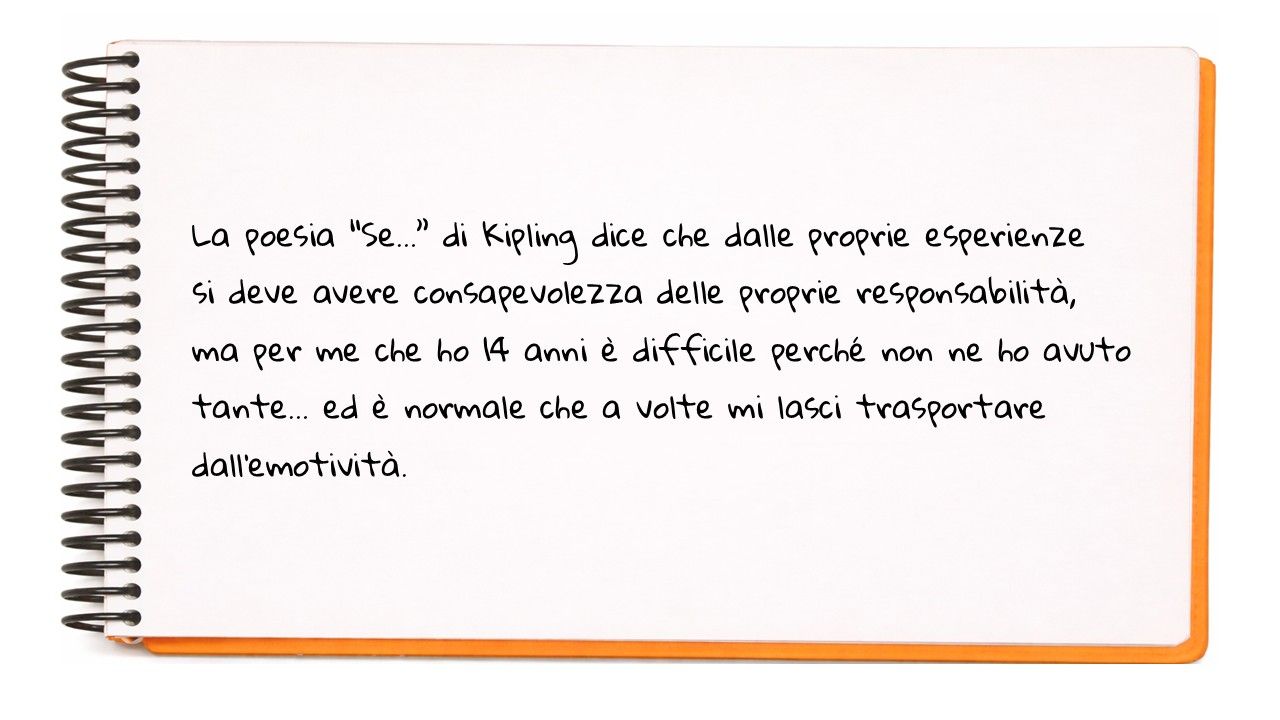 La poesia "Se..." di Kipling dice che dalle proprie esperienze
si deve avere consapevolezza delle proprie responsabilità,
ma per me che ho 14 anni è difficile perché non ne ho avuto
tante... ed è normale che a volte mi lasci trasportare
dall'emotività.